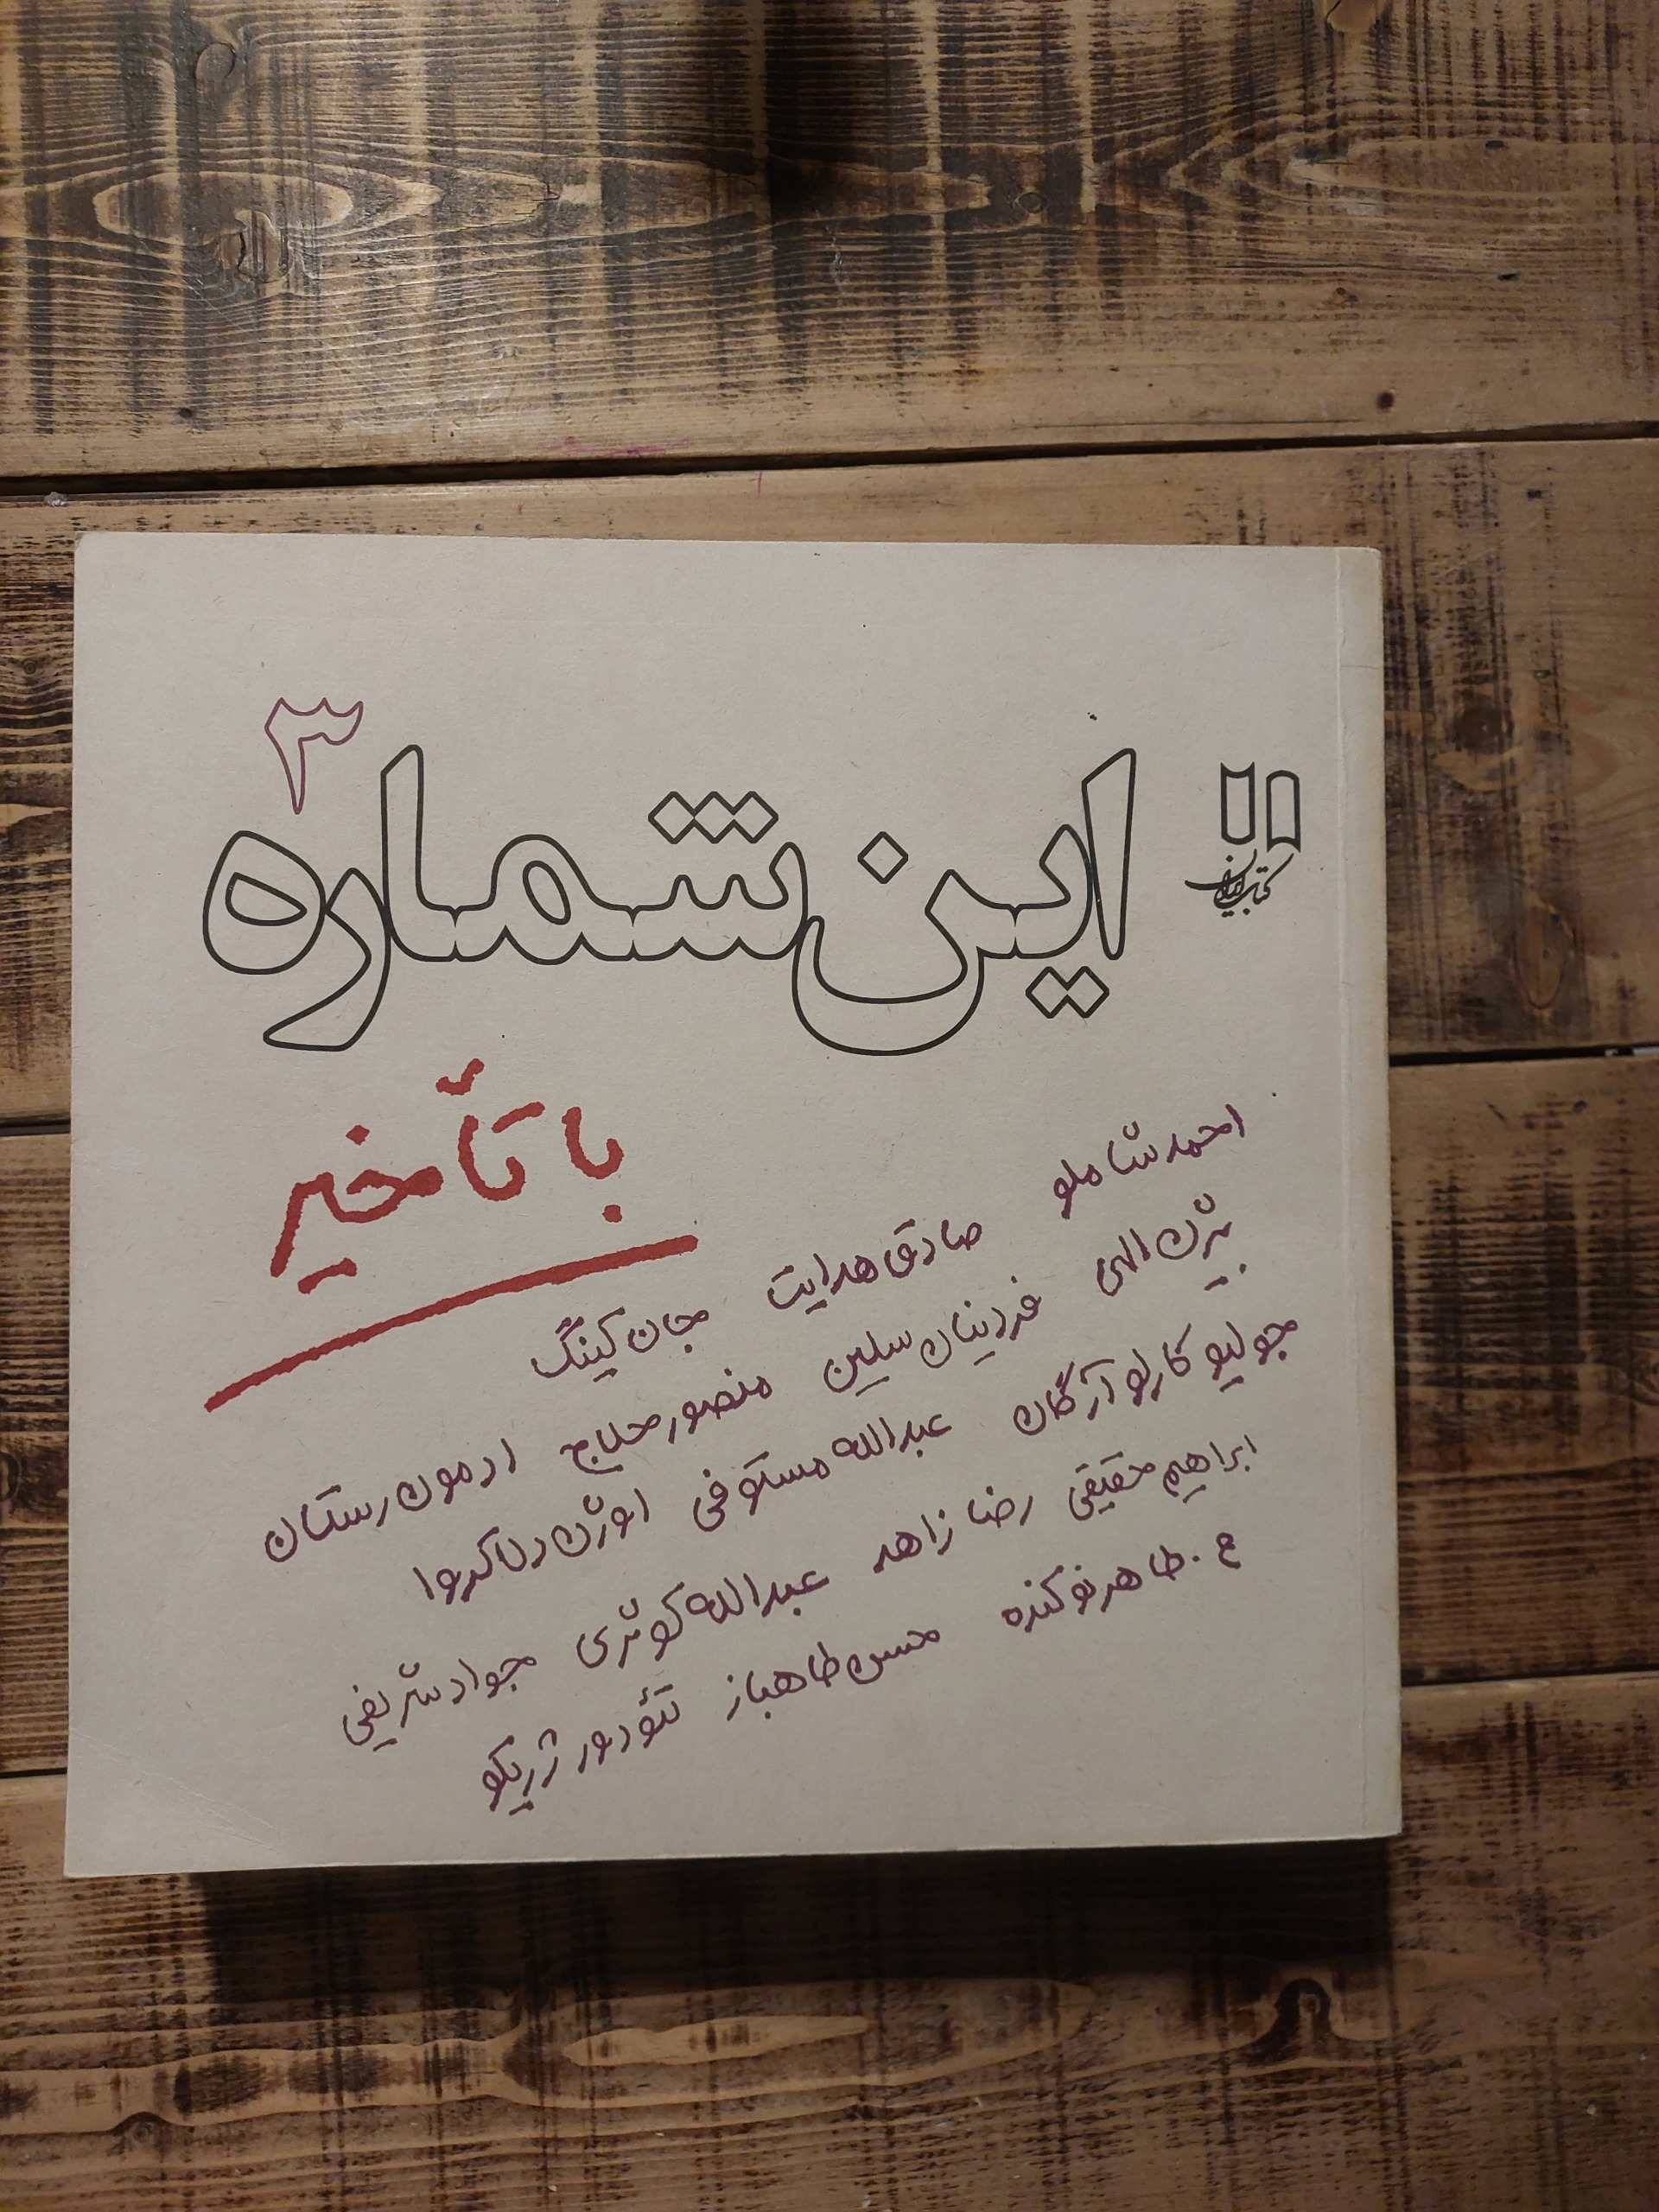 ۳
این شماره
کتاب ایران
با تأخیر
احمد شاملو صادق هدایت جان کینگ
بیژن الهی فردینان سلین منصور حلاج ادمون رستان
جولیو کارلو آرگان عبدالله مستوفی اوژن دلاکروا
ابراهیم حقیقی رضا زاهد عبدالله کوثری جواد شریفی
ع. طاهر نوکنده محسن طاهباز تئودور ژریکو